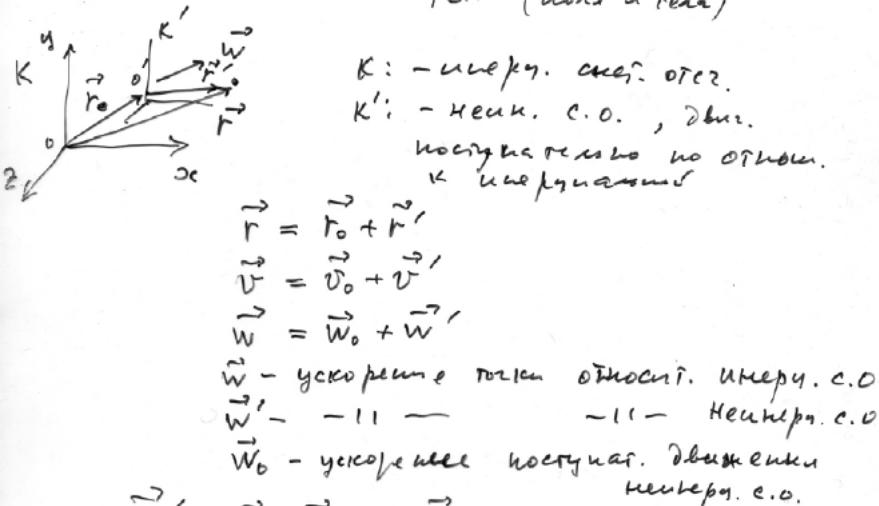 K y K' w⃗
o' r⃗'
r⃗₀ r⃗
o
z x
K: - инерц. сист. отсч.
K': - неин. с.о., движ.
поступательно по отнош.
к инерциальной
r⃗ = r⃗₀ + r⃗'
v⃗ = v⃗₀ + v⃗'
w⃗ = w⃗₀ + w⃗'
w⃗ - ускорение точки относит. инерц. с.о
w⃗' - -〃- -〃- неинерц. с.о
w⃗₀ - ускорение поступат. движения
неинерц. с.о.